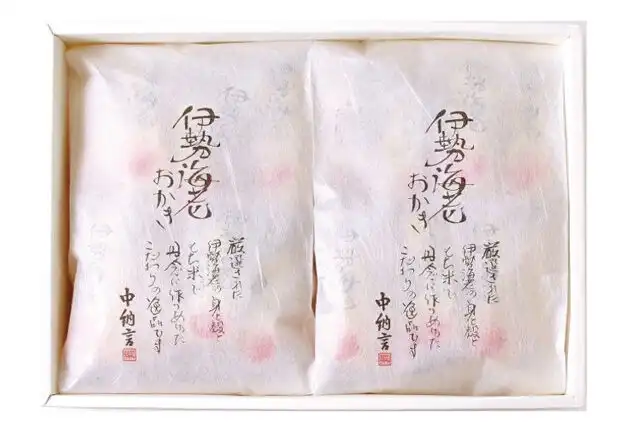 伊勢海老
おかき
厳選された
伊勢海老の身と殻と
もち米で
丹念に作りあげた
こだわりの逸品です
中納言
伊勢海老
おかき
厳選された
伊勢海老の身と殻と
もち米で
丹念に作りあげた
こだわりの逸品です
中納言